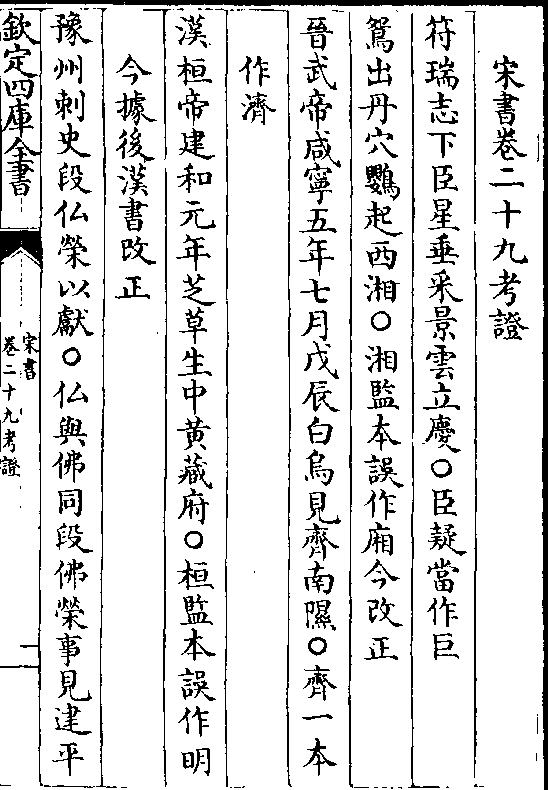 宋書卷二十九考證
符瑞志下臣星垂采景雲立慶○臣疑當作巨
鴛出丹穴鸚起西湘○湘監本誤作廂今改正
晉武帝咸寧五年七月戊辰白烏見齊南隰○齊一本
作濟
漢桓帝建和元年芝草生中黄藏府○桓監本誤作明
今據後漢書改正
豫州刺史段仏榮以獻○仏與佛同段佛榮事見建平
欽定四庫全書
宋書
卷二十九考證
一